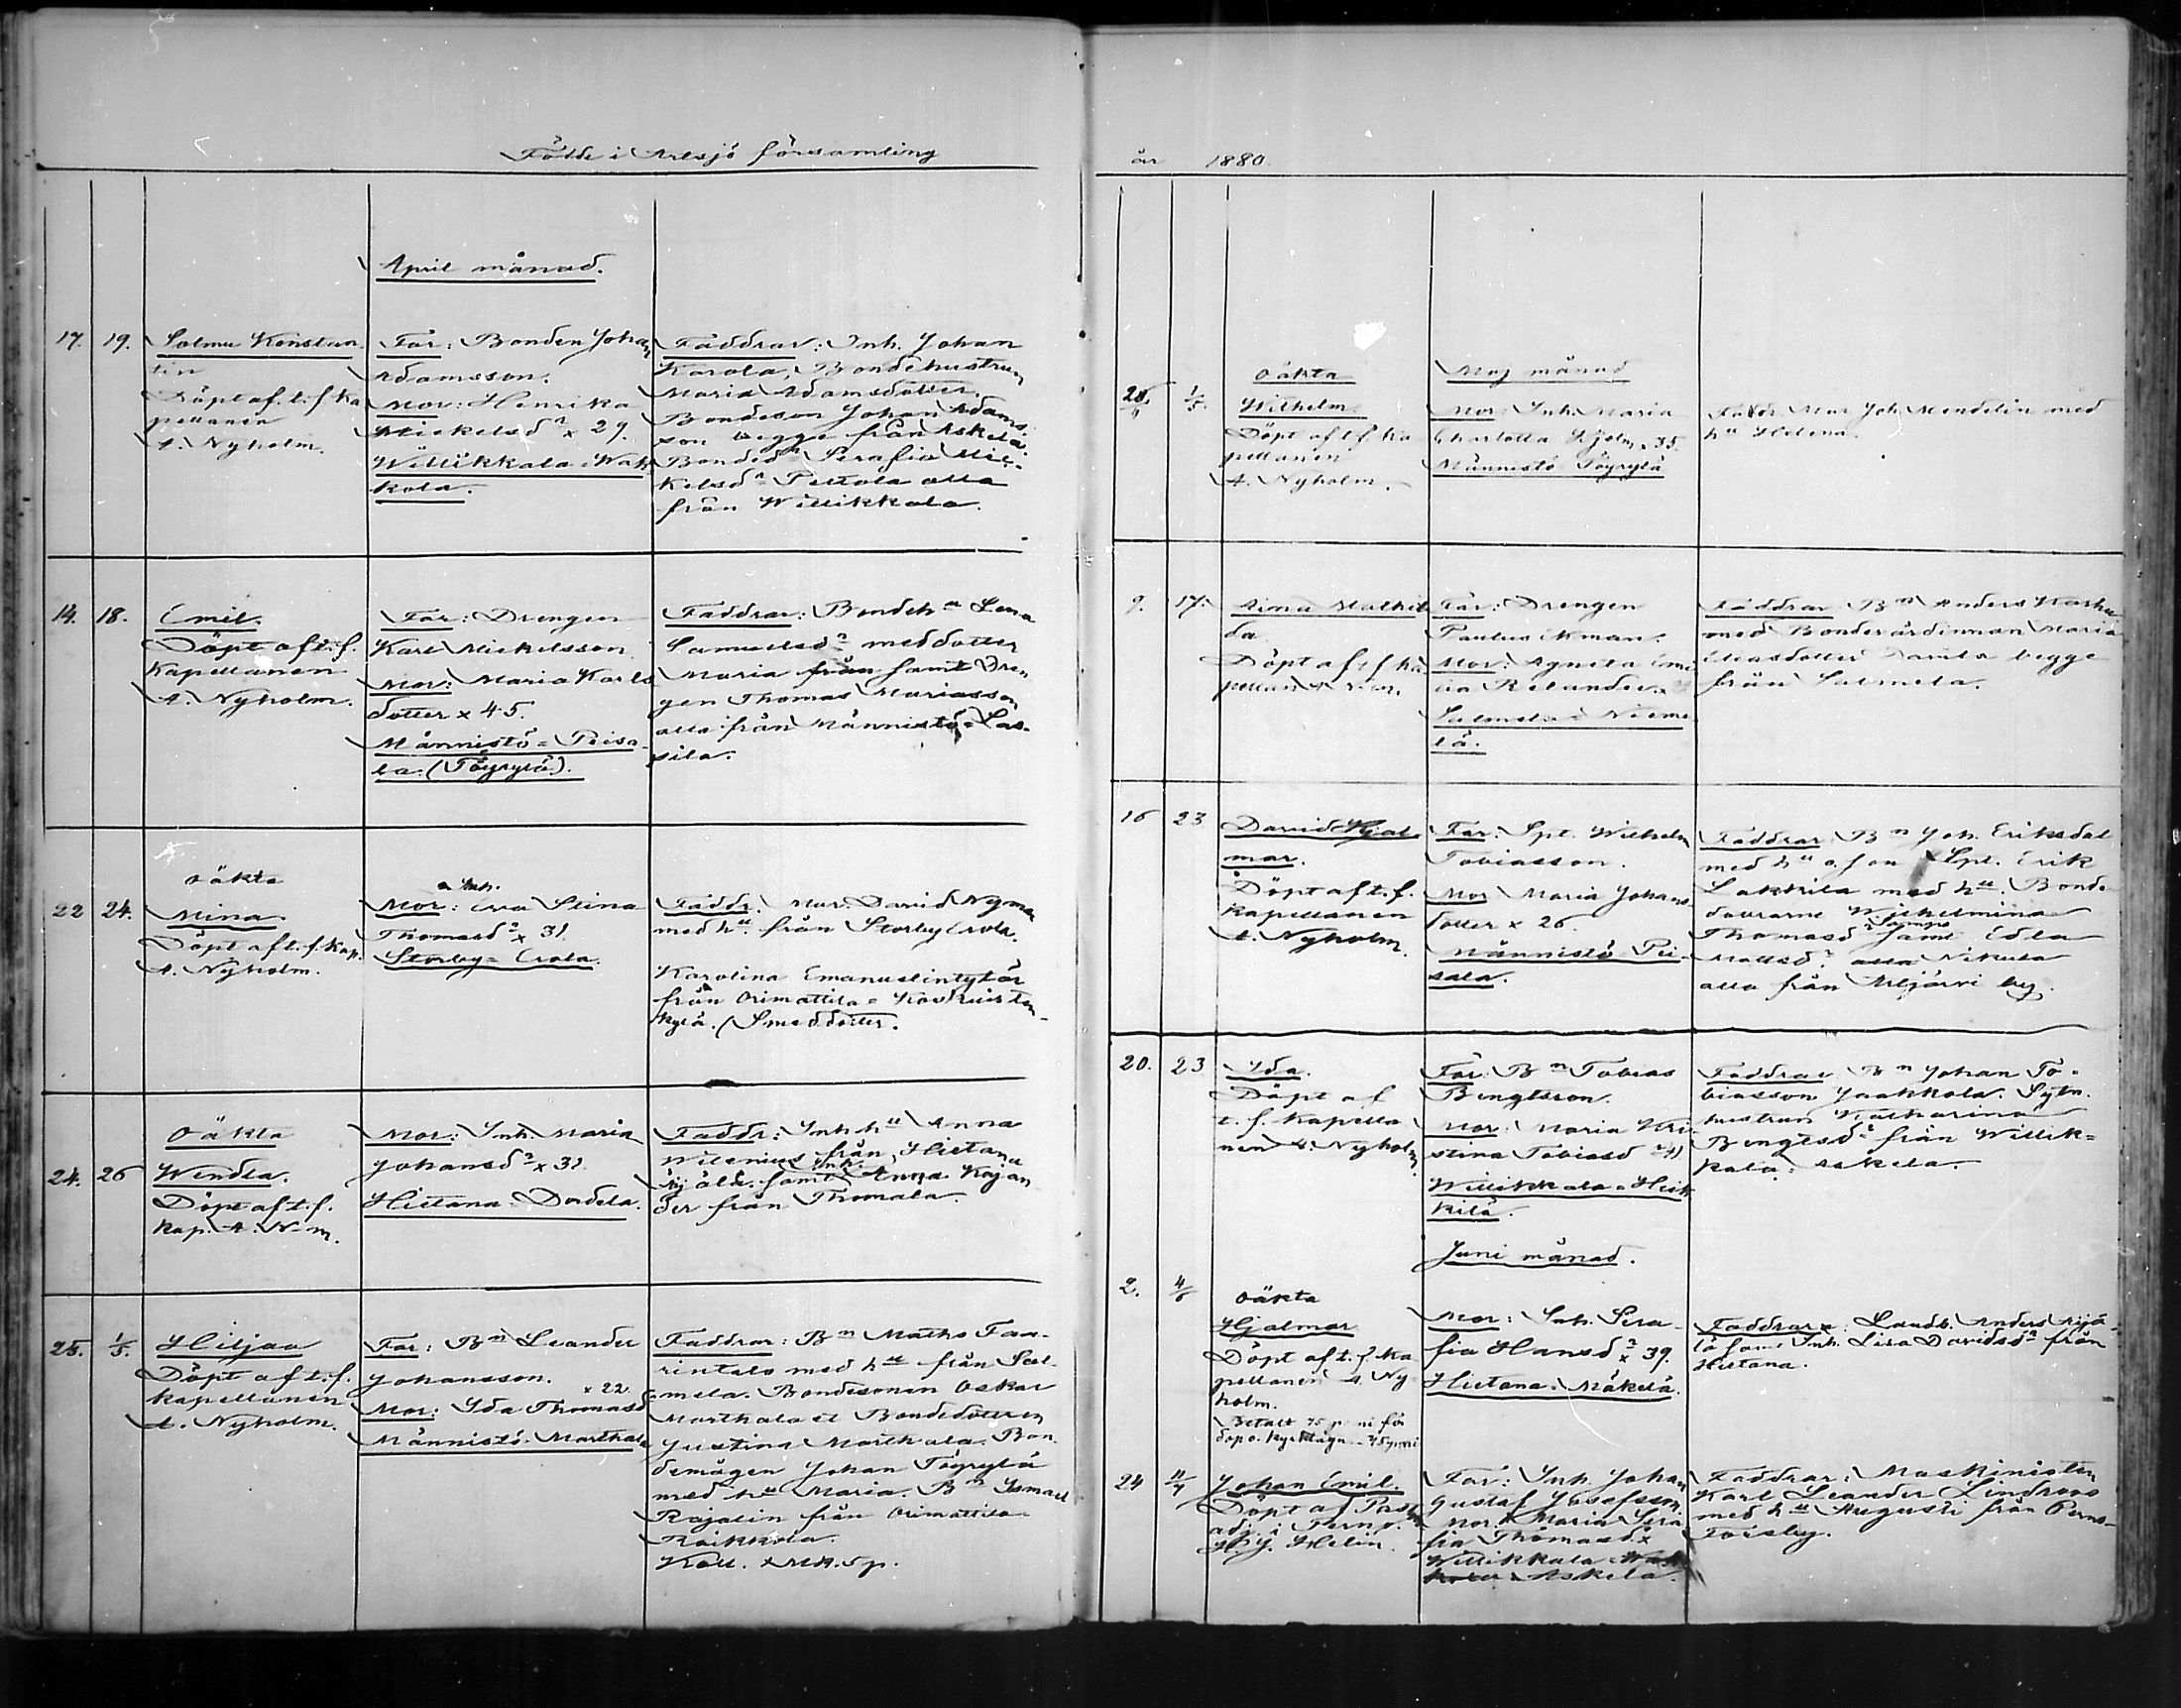 Födde i Artsjö församling
år 1880.
April månad.
17. 19. Salmu Konstan
tin
Döpt af t. f. Ka
pellanen
A. Nyholm.
Far: Bonden Johan
Adamsson.
Mor: Henrika
Mickelsdr x 29.
Willikkala = Wak
kola.
Faddrar: Inh. Johan
Karola, Bondehustrun
Maria Adamsdotter.
Bondeson Johan Adams
son begge från Askela.
Bonded. Serafia Mic-
kelsdr Peltola alla
från Willikkala.
14. 18. Emil.
Döpt af t. f.
Kapellanen
A. Nyholm.
Far: Drengen
Karl Mickelsson
Mor: Maria Karls
dotter x 45.
Männistö = Piisa
la. (Töyrylä).
Faddrar: Bondeh:u Lena
Samuelsdr med dotter
Maria från samt Dren
gen Thomas Mariasson
alla från Männistö = Las-
sila.
22 24.
oäkta
Mina.
Döpt af t. f. Kap.
A. Nyholm.
Inh.
Mor: Eva Stina
Thomasdr x 31.
Storby = Erola.
Faddr. Mur. David Nyman
med h:u från Storby Erola.
Karolina Emanuelintytär
från Orimattila = Koskuisten
kylä. (Smeddotter.
24. 26
Oäkta
Wendla.
Döpt af t. f.
Kap. A. N-m.
Mor: Inh. Maria
Johansdr x 31.
Hietana = Dordela.
Faddr: Inh. h:u Anna
Wilenius från Hietana
Äijälä. samt Inh. Anna Kajan
der från Thomala.
25. 1/5. Hiljaa
Döpt af t. f.
kapellanen
A. Nyholm.
Far: B:n Leander
Johansson.
x 22.
Mor: Ida Thomasd
Männistö = Marthala
Faddrar: B:n Maths Faa-
rintalo med h:u från Sal-
mela. Bondesonen Oskar
Marthala et Bondedottren
Justina Marthala. Bon
demågen Johan Töyrylä
med h:u Maria. B:n Ismael
Rajalin från Orimattila
Raikkola.
Koll.
oäkta
Wilhelm
Döpt af t. f. Ka
pellanen
A. Nyholm.
1/5.
Maj månad
Mor Inh. Maria
Charlotta Hjelm x 35.
Männistö Töyrylä
Faddr. Mur Joh. Mendelin med
h:u Helena.
9. 17. Aina Mathil
da
Döpt af t. f. Ka
pellan A. N-m.
Far: Drengen
Paulus Ekman.
Mor: Agneta Emi
lia Relander x
Salmela = Nieme
lä.
Faddrar B:n Anders Karhu
med Bondevärdinnan Maria
Eliasdotter begge
från Salmela.
16 23 David Hjal
mar.
Döpt af t. f.
Kapellanen
A. Nyholm.
Far: Spt. Wilhelm
Tobiasson.
Mor Maria Johans
dotter x 26.
Männistö Pii-
sala.
Faddrar B:n Joh. Eriksdal
med h:u o. son Spt. Erik
Lakkila med h:u. Bonde
dottrarne Wilhelmina
Thomasdr samt Edla
Mattsdr. alla Nikula
alla från Miljärvi by.
20. 23 Ida.
Döpt af
t. f. Kapella
nen A. Nyholm.
Far: B:n Tobias
Bengtsson.
Mor: Maria Kri
stina Tobiasd x 41
Willikkala = Heik
kilä.
Faddrar B:n Johan To-
biasson Jaakkola. Sytn.
hustrun Katharina
Bengtsdr från Willik=
kala: Askela.
Juni månad.
2. 4/6
oäkta
Hjalmar
Döpt af t. f. Ka
pellanen A. Ny
holm.
Betalt 75 penni för
dop o. kyrktagn.
Mor: Inh. Sera-
fia Hansdr x 39.
Hietana = Mäkelä.
Faddrar: Landb. Anders Äijä-
lä samt Inh. Lisa Davidsdr från
Hietana.
24 11/7 Johan Emil.
Döpt af Past.
adj. i Perno.
H. J. Helin.
Far: Inh. Johan
Gustaf Josefsson
Mor: Maria Sera
fia Thomasd. x
Willikkala
Askela.
Faddrar: Maskinisten
Karl Leander Lindroos
med h:u Augusti från Perno
Forsby.